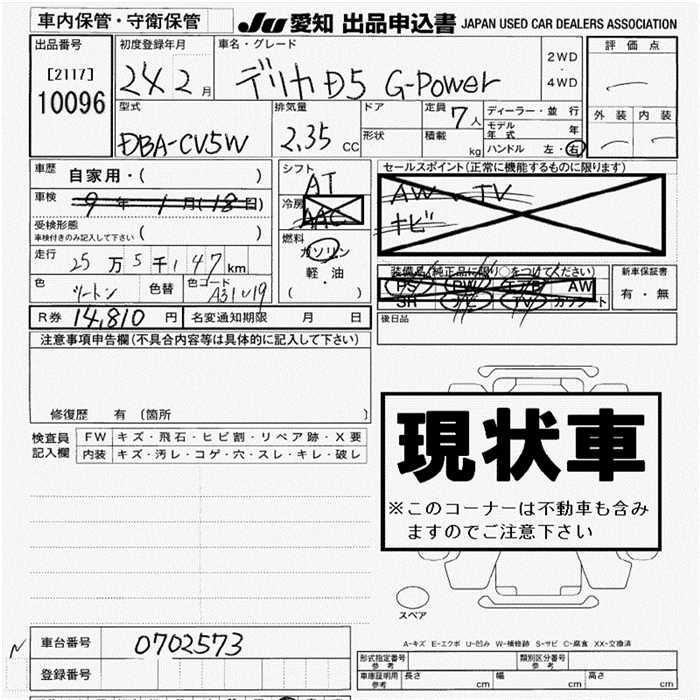 車内保管・守衛保管
JU 愛知 出品申込書 JAPAN USED CAR DEALERS ASSOCIATION
出品番号
[2117]
10096
初度登録年月
24 2 月
車名・グレード
デリカD5 G-Power
2WD
・
4WD
評価点
外装 内装
型式
DBA-CV5W
排気量
2.35 CC
ドア
形状
定員 7 人
積載 kg
ディーラー・並行
モデル年式 年
ハンドル 左・右
車歴 自家用・( )
車検 9 年 1 月(18日)
受検形態
車検付きのみ記入して下さい ( )
走行 25 万 5 千 147 km
色 ツートン 色替 色コード A31U19
シフト
AT
冷房
AAC
燃料
ガソリン
軽・油
( )
セールスポイント(正常に機能するものに限ります)
AW・TV
ナビ
装備品(純正品に限り○をつけてください)
PS PW エアB AW
SR ナビ TV カワシート
新車保証書
有・無
後日品
R券 14,810 円 名変通知期限 月 日
注意事項申告欄(不具合内容等は具体的に記入して下さい)
修復歴 有 〔箇所 〕
検査員
記入欄
FW キズ・飛石・ヒビ割・リペア跡・X要
内装 キズ・汚レ・コゲ・穴・スレ・キレ・破レ
現状車
※このコーナーは不動車も含み
ますのでご注意下さい
スペア
A-キズ E-エクボ U-凹み W-補修跡 S-サビ C-腐食 XX-交換済
N 車台番号 0702573
登録番号
形式指定番号
参考
類別区分番号
参考
車庫証明用
参考
長さ cm 幅 cm 高さ cm